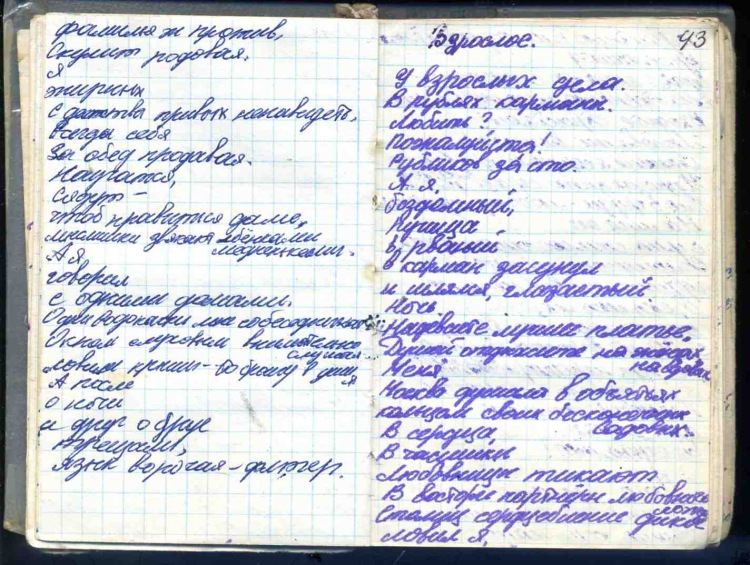 фамилья ж против,
Скулит родовая.
Я
жирных
с детства привык ненавидеть,
Всегда себя
За обед продавая.
Научатся,
Сядут —
чтоб нравиться даме,
мыслишки звякают лбёнками
медненькими.
А я
говорил
с одними домами.
Одни водокачки мне собеседниками
Окном слуховым внимательно
слушая
ловили крыши — что брошу в уши я
А после
о ночи
и друг о друге
Трещали,
язык ворочая — флюгер.
Взрослое.
43
У взрослых дела.
В рублях карманы.
Любить?
Пожалуйста!
Рубликов за сто.
А я,
бездомный,
Ручища
в рваный
В карман засунул
и шлялся, глазастый.
Ночь
Надеваете лучшее платье,
Душой отдыхаете на жёнах
на вдовах
Меня
Москва душила в объятьях
кольцом своих бесконечных
Садовых.
В сердца,
В часишки
Любовницы тикают
В восторге партнёры любовного
ложа
Столиц сердцебиение дикое
ловил я,